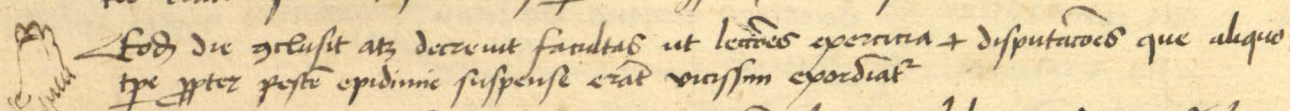 Eod die ꝯclusit atꝫ decreuit facultas ut lectōes exercicia ⁊ disputacōes que aliquo
tꝑe ꝓpter pestē epidimie suspense erāt vicissim exordiātᷣ